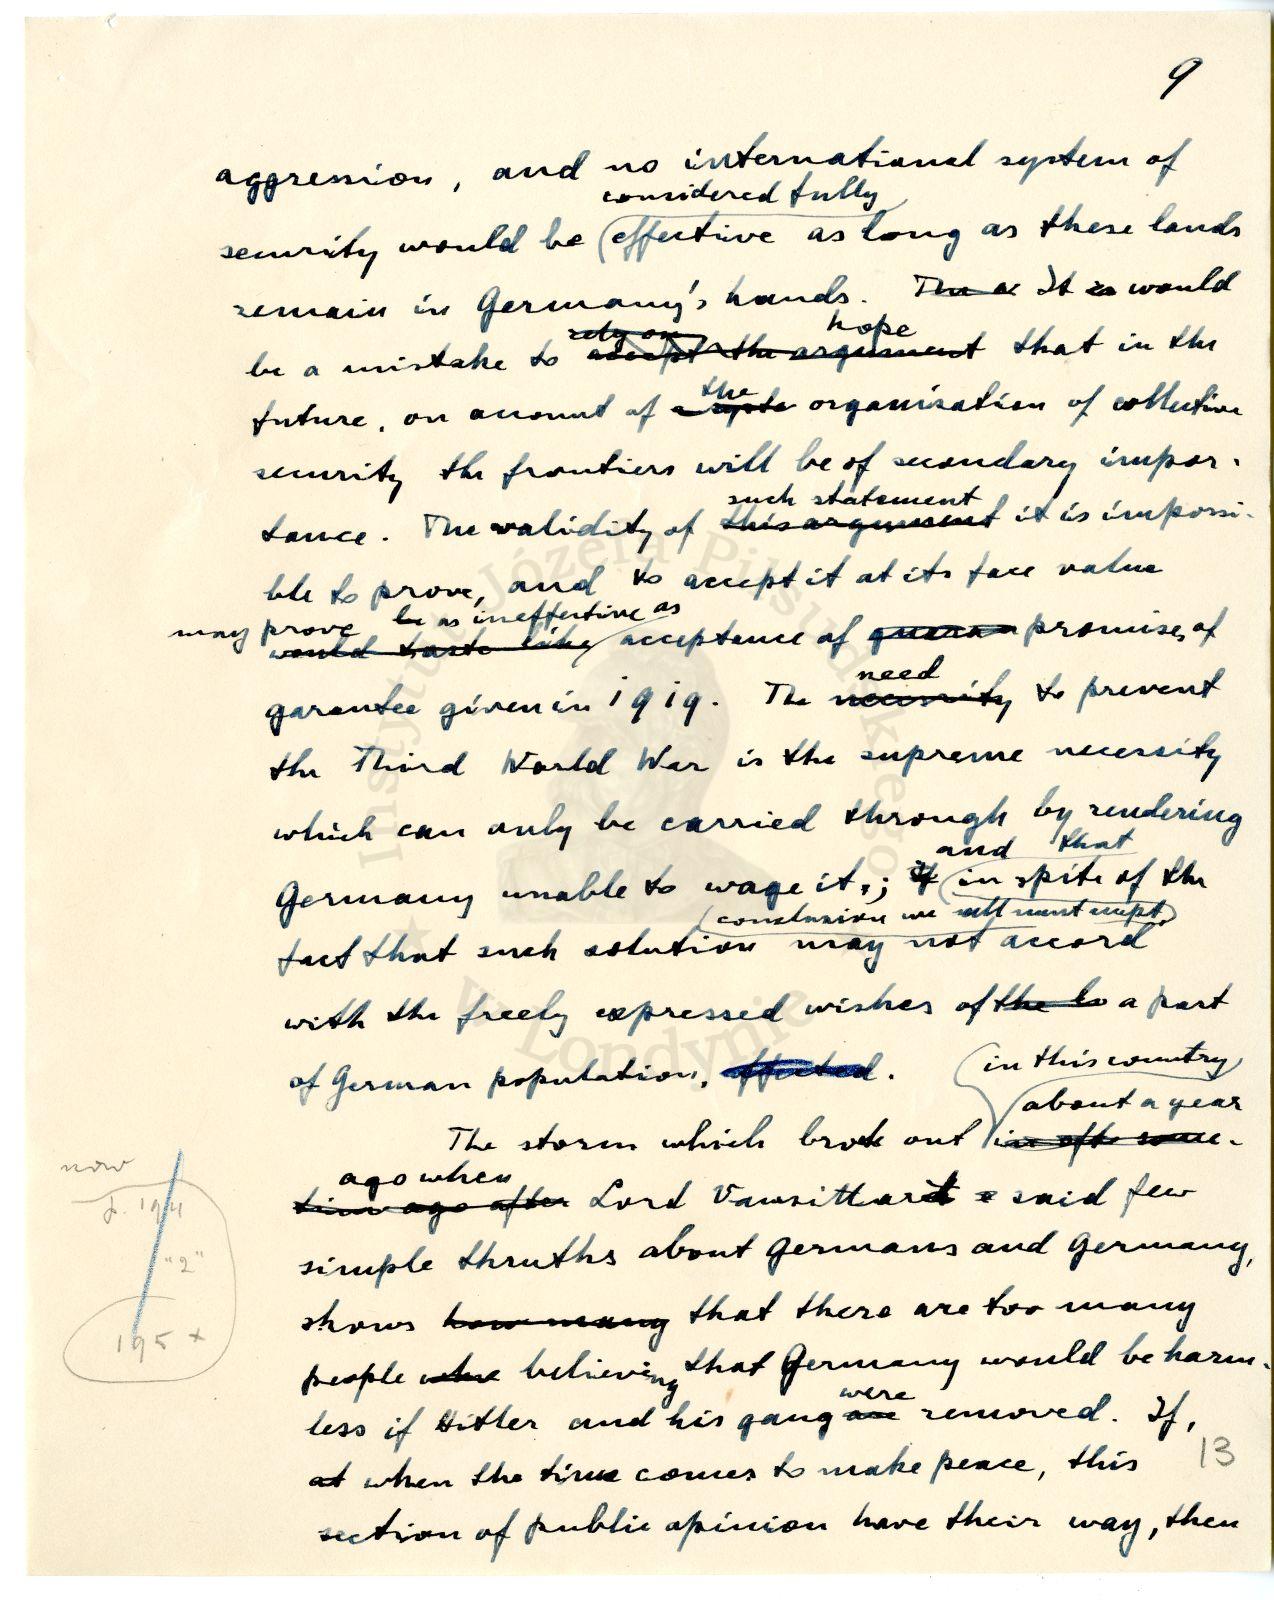 9
aggression, and no international system of
considered fully
security would be effective as long as these lands
remain in Germany's hands. The a It is would
rely on hope
be a mistake to accept the argument that in the
the
future, on acount of a syste organisation of collective
security the frontiers will be of secondary impor-
such statement
tance. The validity of this argument it is impossi-
ble to prove, and to accept it at its face value
may prove be as ineffective as
would taste like acceptance of promises of
garantee given in 1919. The necessity to prevent
need
the Third World War is the supreme necessity
which can only be carried through by rendering
and that
Germany unable to wage it,; if in spite of the
conclusion we all must accept
fact that such solution may not accord
with the freely expressed wishes of the lo a part
of German population, affected.
in this country
about a year
The storm which broke out in oft some-
ago when
time ago after Lord Vansittart said few
simple thruths about Germans and Germany,
shows how many that there are too many
people who believing that Germany would be harm-
were
less if Hitler and his gang are removed. If,
at when the time comes to make peace, this
section of public opinion have their way, then
now
J. 1941
"2"
195 x
13
Instytut Józefa Piłsudskiego
w Londynie